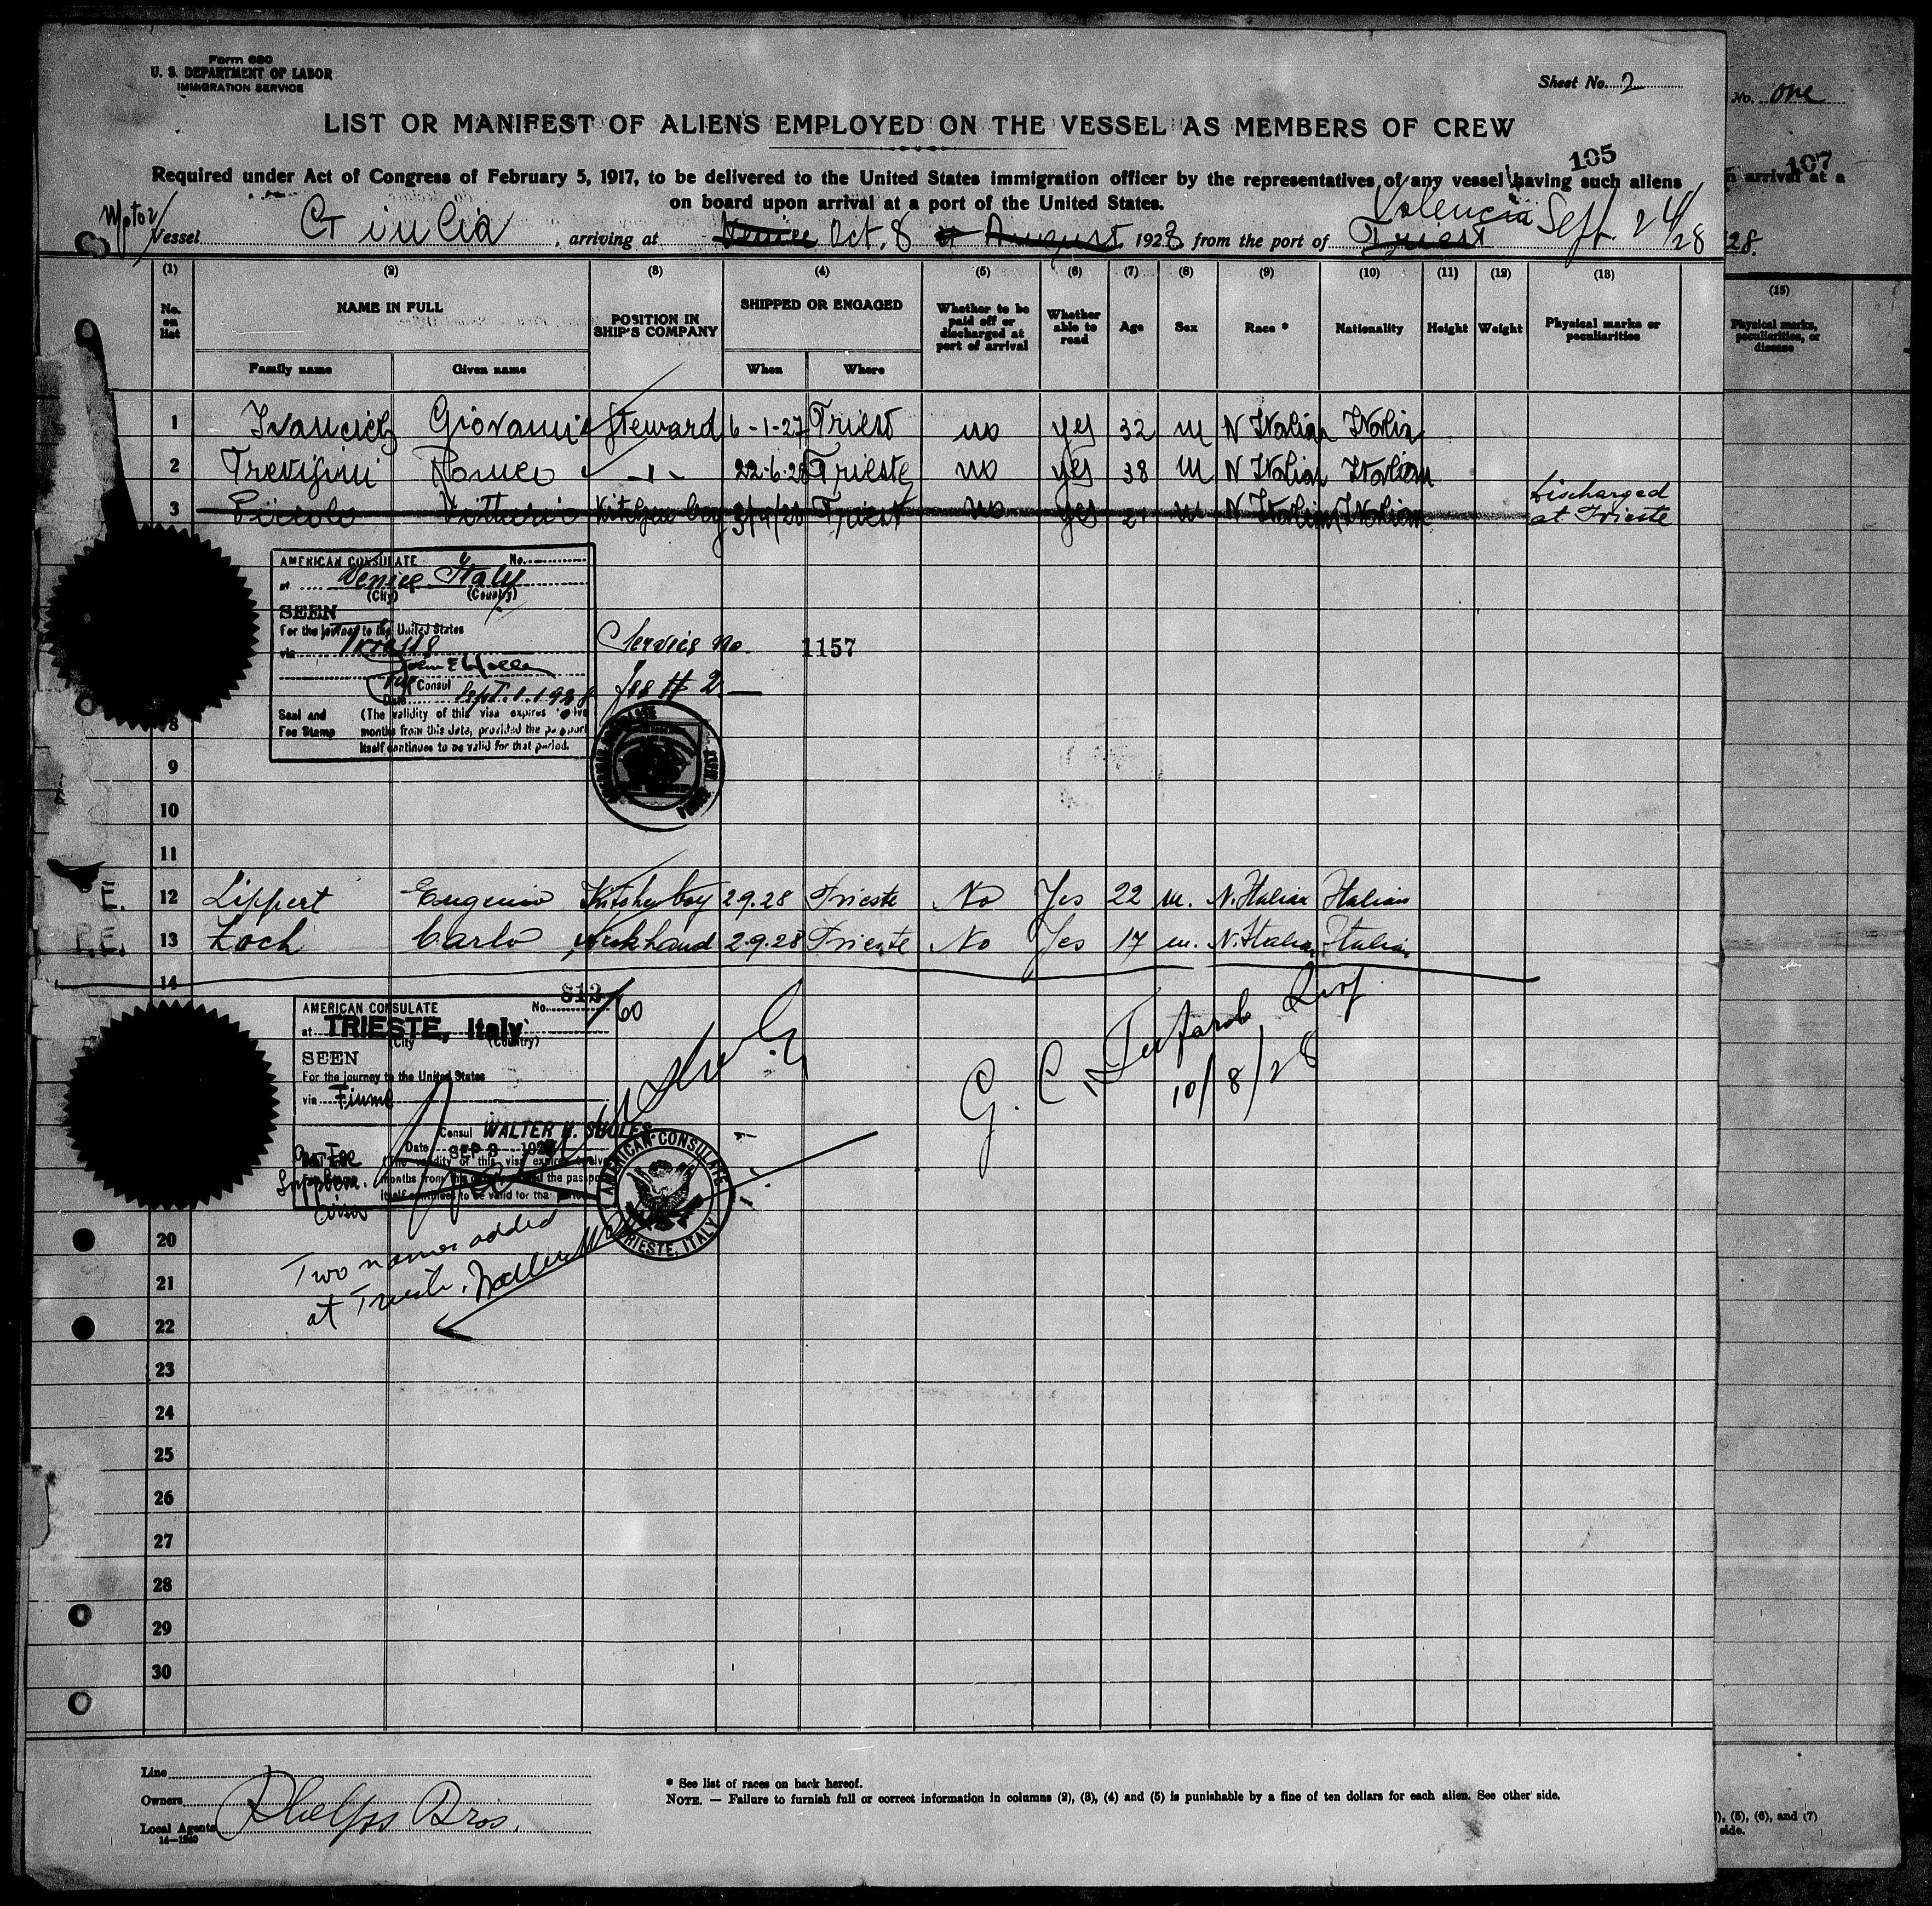 Form 680
U. S. DEPARTMENT OF LABOR
IMMIGRATION SERVICE
Sheet No. 2
No. one
LIST OR MANIFEST OF ALIENS EMPLOYED ON THE VESSEL AS MEMBERS OF CREW
105
107
Required under Act of Congress of February 5, 1917, to be delivered to the United States immigration officer by the representatives of any vessel having such aliens
on board upon arrival at a port of the United States.
n arrival at a
Motor Vessel Giulia, arriving at Venice Oct. 8 August 1928 from the port of Triest Valencia Sept 24/28
28.
(1) (2) (3) (4) (5) (6) (7) (8) (9) (10) (11) (12) (13)
No. on list
NAME IN FULL
Family name Given name
POSITION IN SHIP'S COMPANY
SHIPPED OR ENGAGED
When Where
Whether to be paid off or discharged at port of arrival
Whether able to read
Age
Sex
Race *
Nationality
Height
Weight
Physical marks or peculiarities
(15)
Physical marks, peculiarities, or disease
1 Ivancich Giovanni Steward 6-1-27 Triest no yes 32 m N Italian Italia
2 Trevisini Romeo -"- 22-6-28 Trieste no yes 38 m N Italian Italian
3 Piccolo Vittorio Kitchen boy Triest no yes 21 m N Italian Italian Discharged at Trieste
AMERICAN CONSULATE No.
at Venice Italy
(City) (Country)
SEEN
For the journey to the United States
via Trieste
Consul
Date Sept. 1. 1928
Seal and Fee Stamp
(The validity of this visa expires twelve
months from this date, provided the passport
itself continues to be valid for that period.
Service No. 1157
Fee # 2—
8
9
10
11
E. 12 Lippert Eugenio Kitchenboy 2.9.28 Trieste No Yes 22 m. N. Italian Italian
13 Zoch Carlo Deckhand 2.9.28 Trieste No Yes 17 m. N. Italian Italian
14
AMERICAN CONSULATE No. 812
at TRIESTE, Italy
(City) (Country)
SEEN
For the journey to the United States
via Fiume
Consul WALTER H. SHOLES
Date SEP 3 1928
(The validity of this visa expires twelve
months from this date, provided the passport
itself continues to be valid for that period.
No Fee
AMERICAN CONSULATE
TRIESTE, ITALY
G. C.
10/8/28
Two names added
at Trieste.
20
21
22
23
24
25
26
27
28
29
30
Line
Owners
Local Agents Phelps Bros.
14—1240
* See list of races on back hereof.
NOTE. — Failure to furnish full or correct information in columns (2), (3), (4) and (5) is punishable by a fine of ten dollars for each alien. See other side.
), (5), (6), and (7)
side.